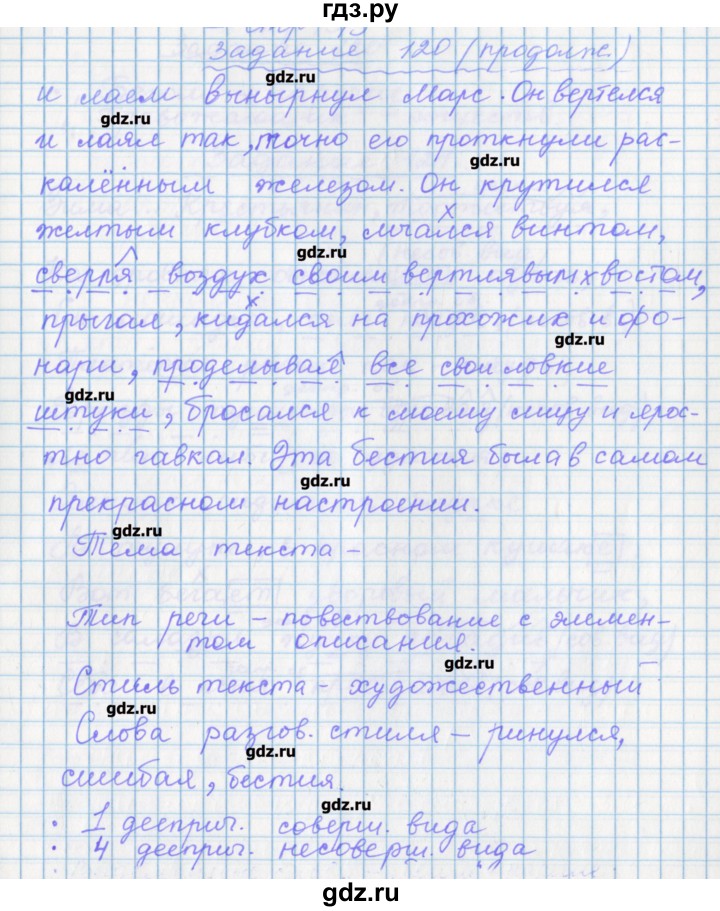 гдз.ру
стр 49
Задание 120 (продолж.)
gdz.ru
и лаем вынырнул Марс. Он вертелся
gdz.ru
и лаял так, точно его проткнули рас-
gdz.ru
калённым железом. Он крутился
желтым клубком, мчался винтом,
gdz.ru
сверля воздух своим вертлявым хвостом,
прыгал, кидался на прохожих и фо-
gdz.ru
нари, проделывая все свои ловкие
gdz.ru
штуки, бросался к моему лицу и ярос-
тно гавкал. Эта бестия была в самом
gdz.ru
прекрасном настроении.
gdz.ru
Тема текста -
Тип речи - повествование с элемен-
том описания.
gdz.ru
Стиль текста - художественный
gdz.ru
Слова разгов. стиля - ринулся,
gdz.ru
сшибая, бестия.
gdz.ru
1 дееприч. соверш. вида
4 дееприч. несоверш. вида
gdz.ru
gdz.ru